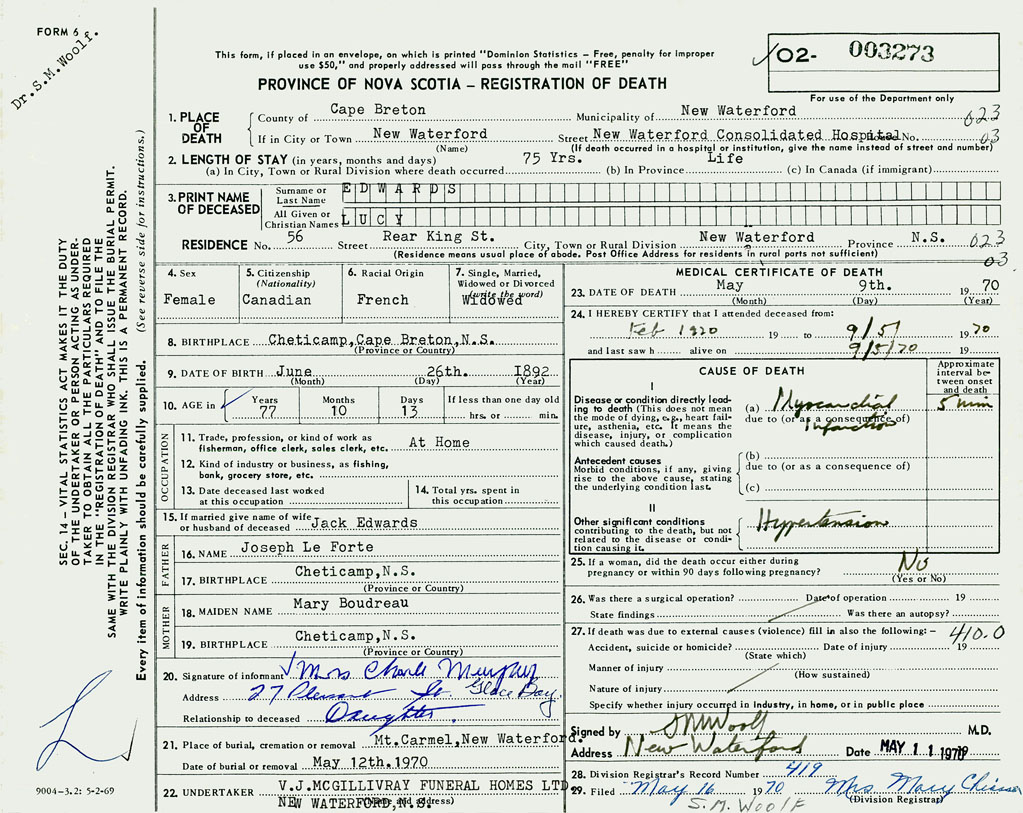 FORM 6
Dr. S.M. Woolf.
This form, if placed in an envelope, on which is printed "Dominion Statistics – Free, penalty for improper
use $50," and properly addressed will pass through the mail "FREE"
PROVINCE OF NOVA SCOTIA – REGISTRATION OF DEATH
02- 003273
For use of the Department only
1. PLACE OF DEATH
County of Cape Breton Municipality of New Waterford 023
If in City or Town New Waterford Street New Waterford Consolidated Hospital No. 03
(Name) (If death occurred in a hospital or institution, give the name instead of street and number)
2. LENGTH OF STAY (in years, months and days) 75 Yrs. Life
(a) In City, Town or Rural Division where death occurred (b) In Province (c) In Canada (if immigrant)
3. PRINT NAME OF DECEASED
Surname or Last Name EDWARDS
All Given or Christian Names LUCY
RESIDENCE No. 56 Street Rear King St. City, Town or Rural Division New Waterford Province N.S. 023
(Residence means usual place of abode. Post Office Address for residents in rural parts not sufficient) 03.
4. Sex
Female
5. Citizenship
(Nationality)
Canadian
6. Racial Origin
French
7. Single, Married,
Widowed or Divorced
(write the word)
Widowed
8. BIRTHPLACE Cheticamp,Cape Breton,N.S.
(Province or Country)
9. DATE OF BIRTH June 26th. 1892
(Month) (Day) (Year)
10. AGE in
Years Months Days If less than one day old
77 10 13 hrs. or min.
OCCUPATION
11. Trade, profession, or kind of work as
fisherman, office clerk, sales clerk, etc. At Home
12. Kind of industry or business, as fishing,
bank, grocery store, etc.
13. Date deceased last worked
at this occupation
14. Total yrs. spent in
this occupation
15. If married give name of wife
or husband of deceased Jack Edwards
FATHER
16. NAME Joseph Le Forte
17. BIRTHPLACE Cheticamp,N.S.
(Province or Country)
MOTHER
18. MAIDEN NAME Mary Boudreau
19. BIRTHPLACE Cheticamp,N.S.
(Province or Country)
20. Signature of informant Mrs Charle Murphy
Address 27 Pleasant St. Glace Bay.
Relationship to deceased Daughter.
21. Place of burial, cremation or removal Mt.Carmel,New Waterford.
Date of burial or removal May 12th.1970
22. UNDERTAKER V.J.MCGILLIVRAY FUNERAL HOMES LTD
NEW WATERFORD,N.S.
(Name and address)
MEDICAL CERTIFICATE OF DEATH
23. DATE OF DEATH May 9th. 1970
(Month) (Day) (Year)
24. I HEREBY CERTIFY that I attended deceased from:
Feb 1920 19 to 9/5/ 1970
and last saw h alive on 9/5/70 19
CAUSE OF DEATH
Approximate
interval be-
tween onset
and death
I
Disease or condition directly lead-
ing to death (This does not mean
the mode of dying, e.g., heart fail-
ure, asthenia, etc. It means the
disease, injury, or complication
which caused death.)
(a) Myocardial 5 min
due to (or as a consequence of)
Infarction
Antecedent causes
Morbid conditions, if any, giving
rise to the above cause, stating
the underlying condition last.
(b)
due to (or as a consequence of)
(c)
II
Other significant conditions
contributing to the death, but not
related to the disease or condi-
tion causing it.
Hypertension
25. If a woman, did the death occur either during
pregnancy or within 90 days following pregnancy? No
(Yes or No)
26. Was there a surgical operation? Date of operation 19
State findings Was there an autopsy?
27. If death was due to external causes (violence) fill in also the following: – 410.0
Accident, suicide or homicide? Date of injury 19
(State which)
Manner of injury
(How sustained)
Nature of injury
Specify whether injury occurred in industry, in home, or in public place
Signed by SMWoolf M.D.
Address New Waterford Date MAY 11 1970
28. Division Registrar's Record Number 419
29. Filed May 16 1970 Mrs Mary
(Division Registrar)
S.M. WOOLF
SEC. 14 – VITAL STATISTICS ACT MAKES IT THE DUTY
OF THE UNDERTAKER OR PERSON ACTING AS UNDER-
TAKER TO OBTAIN ALL THE PARTICULARS REQUIRED
IN THE "REGISTRATION OF DEATH" AND TO FILE THE
SAME WITH THE DIVISION REGISTRAR WHO SHALL ISSUE THE BURIAL PERMIT.
WRITE PLAINLY WITH UNFADING INK. THIS IS A PERMANENT RECORD.
Every item of information should be carefully supplied. (See reverse side for instructions.)
9004-3.2: 5-2-69